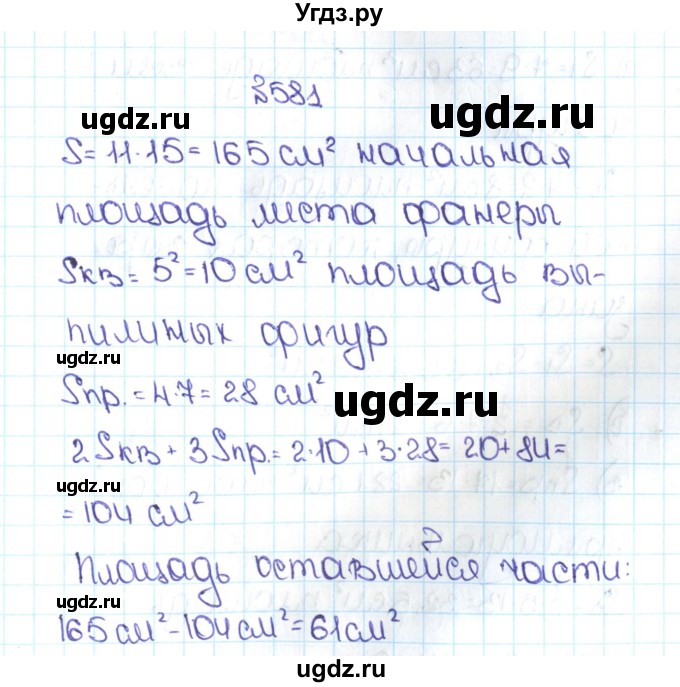 Угдз.ру
№581
ugdz.ru ugdz.ru
S = 11·15 = 165 см² начальная
площадь листа фанеры
Sкв = 5² = 10 см² площадь вы-
пилиных фигур
ugdz.ru
Sпр. = 4·7 = 28 см²
ugdz.ru
2Sкв + 3Sпр. = 2·10 + 3·28 = 20 + 84 =
ugdz.ru
= 104 см²
Площадь оставшейся части:
ugdz.ru
165 см² - 104 см² = 61 см²
ugdz.ru